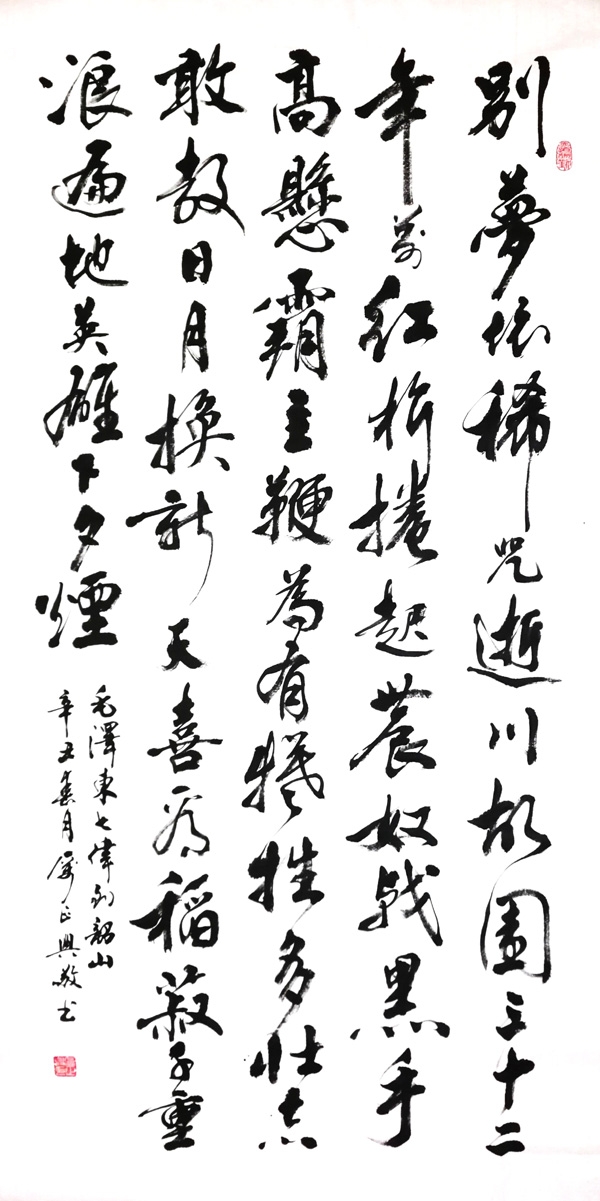 别夢依稀咒逝川故園三十二
年前紅旗捲起農奴戟黑手
高懸霸主鞭為有犧牲多壯志
敢教日月換新天喜看稻菽千重
浪遍地英雄下夕煙
毛澤東七律到韶山
辛丑春月正興敬书